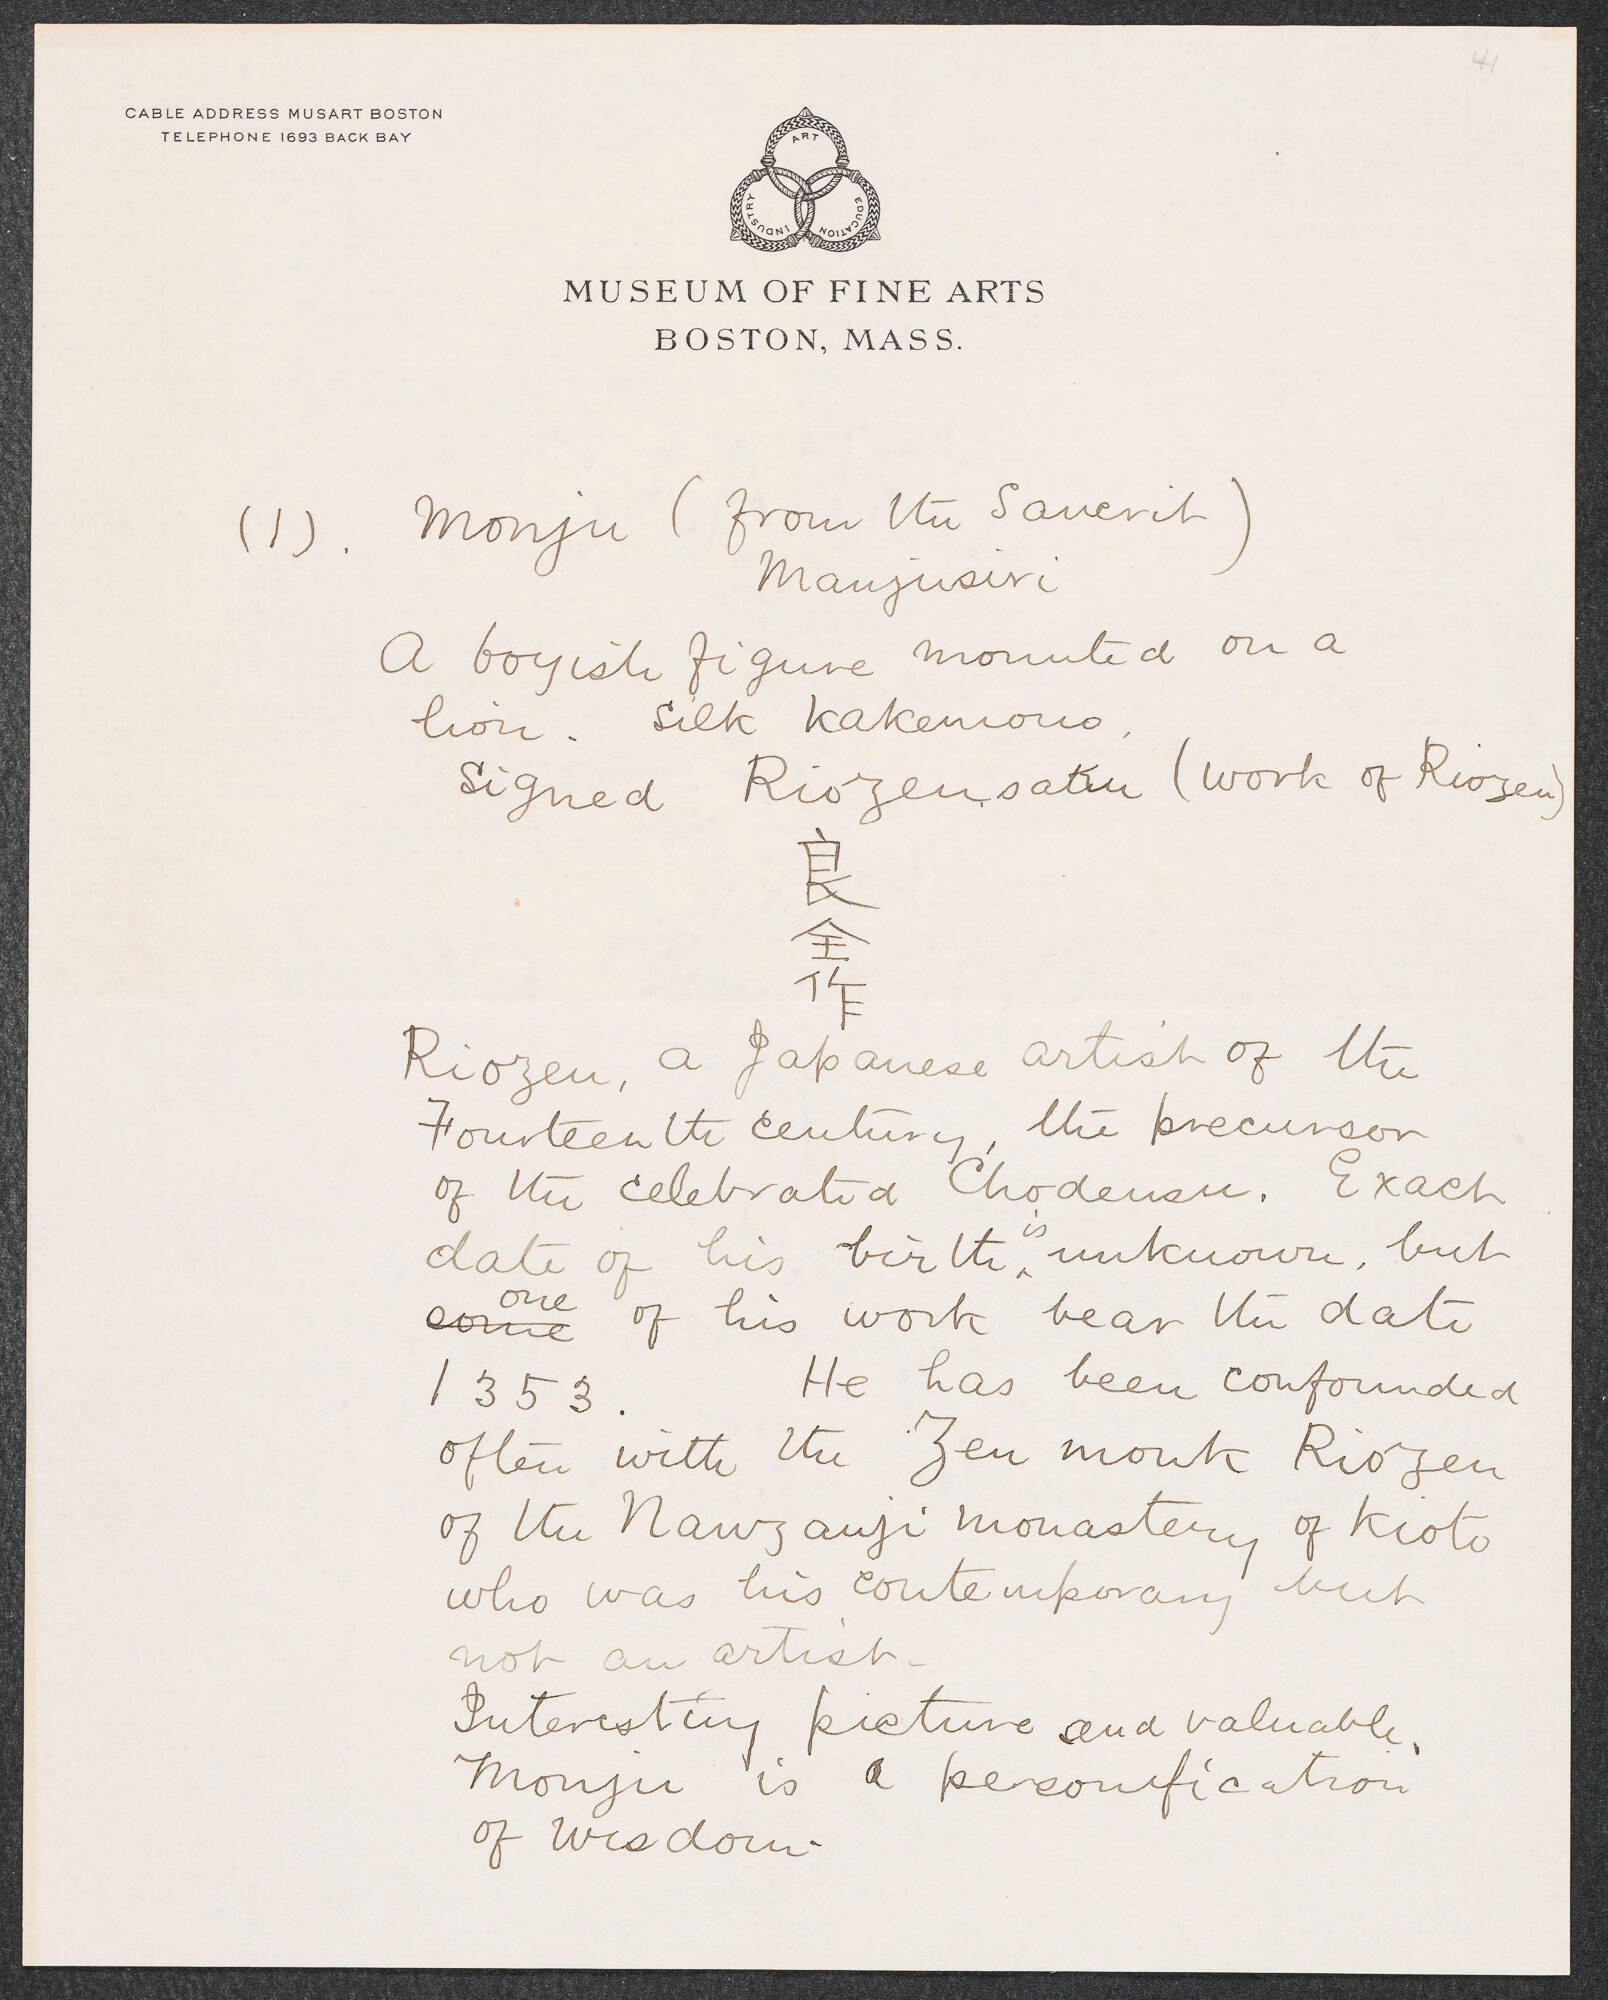 41
CABLE ADDRESS MUSART BOSTON
TELEPHONE 1693 BACK BAY
ART
INDUSTRY
EDUCATION
MUSEUM OF FINE ARTS
BOSTON, MASS.
(1). Monju (from the Sancrit)
Manjusiri
A boyish figure mounted on a
lion. Silk kakemono.
Signed Riozen saku (work of Riozen)
良
全
作
Riozen, a Japanese artist of the
Fourteenth century, the precursor
of the celebrated Chodensu. Exact
date of his birth is unknown, but
some one of his work bear the date
1353. He has been confounded
often with the Zen monk Riozen
of the Nanzanji monastery of Kioto
who was his contemporary but
not an artist.
Interesting picture and valuable.
Monju is a personification
of wisdom.